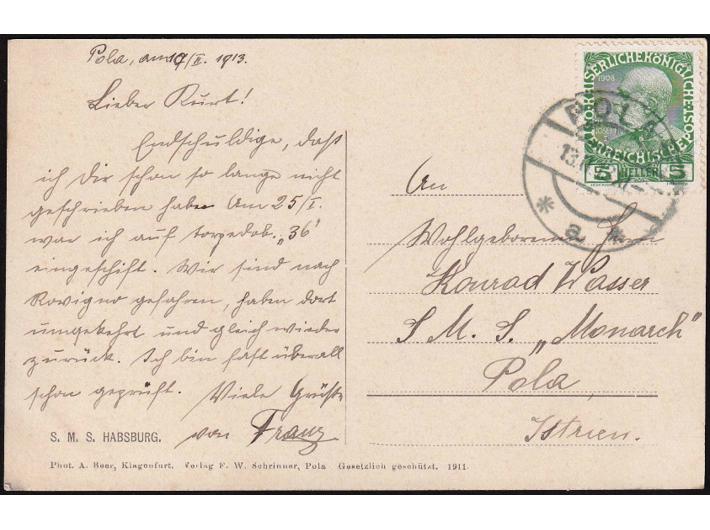 Pola, am 10/II. 1913.
Lieber Kurt!
Endschuldige, daß
ich Dir schon so lange nicht
geschrieben habe Am 25/I.
war ich auf torpedob. „36‘
eingeschift. Wir sind nach
Rovigno gefahren, haben dort
umgekehrt und gleich wieder
zurück. Ich bin fast überall
schon geprüft. Viele Grüße
von Franz
S. M. S. HABSBURG.
Phot. A. Beer, Klagenfurt. Verlag F. W. Schrinner, Pola Gesetzlich geschützt. 1911.
1908
5 HELLER 5
POLA
13.
* a *
An
Wohlgeborenen Herrn
Konrad Wasser
S. M. S. „Monarch“
Pola,
Istrien.